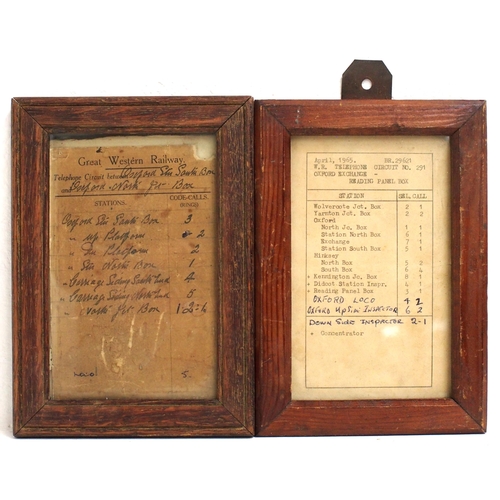 Great Western Railway.
Telephone Circuit Oxford Stn South Box
and Oxford North Jcr Box
STATIONS. CODE-CALLS.
RINGS.
Oxford Stn South Box 3
" Up Platform 2
" Dn Platform 2
" Stn North Box 1
" Carriage Siding South End 4
" Carriage Siding North End 5
" North Jcr Box 1-2-4
Loco 5.
April, 1965. BH.29821
W.R. TELEPHONE CIRCUIT NO. 291
OXFORD EXCHANGE -
READING PANEL BOX
STATION SEL. CALL
Wolvercote Jct. Box 2 1
Yarnton Jct. Box 2 2
Oxford
North Jc. Box 1 1
Station North Box 6 1
Exchange 7 1
Station South Box 5 1
Hinksey
North Box 5 2
South Box 6 4
+ Kennington Jc. Box 8 1
+ Didcot Station Inspr. 4 1
+ Reading Panel Box 3 1
OXFORD LOCO 4 2
OXFORD UPSIDE INSPECTOR 6 2
DOWN SIDE INSPECTOR 2-1
+ Concentrator